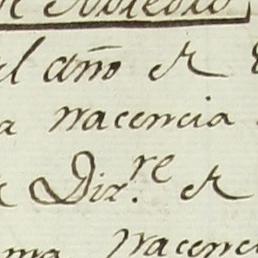 el año de
a nacencia
Diz.re de
ma nacenci